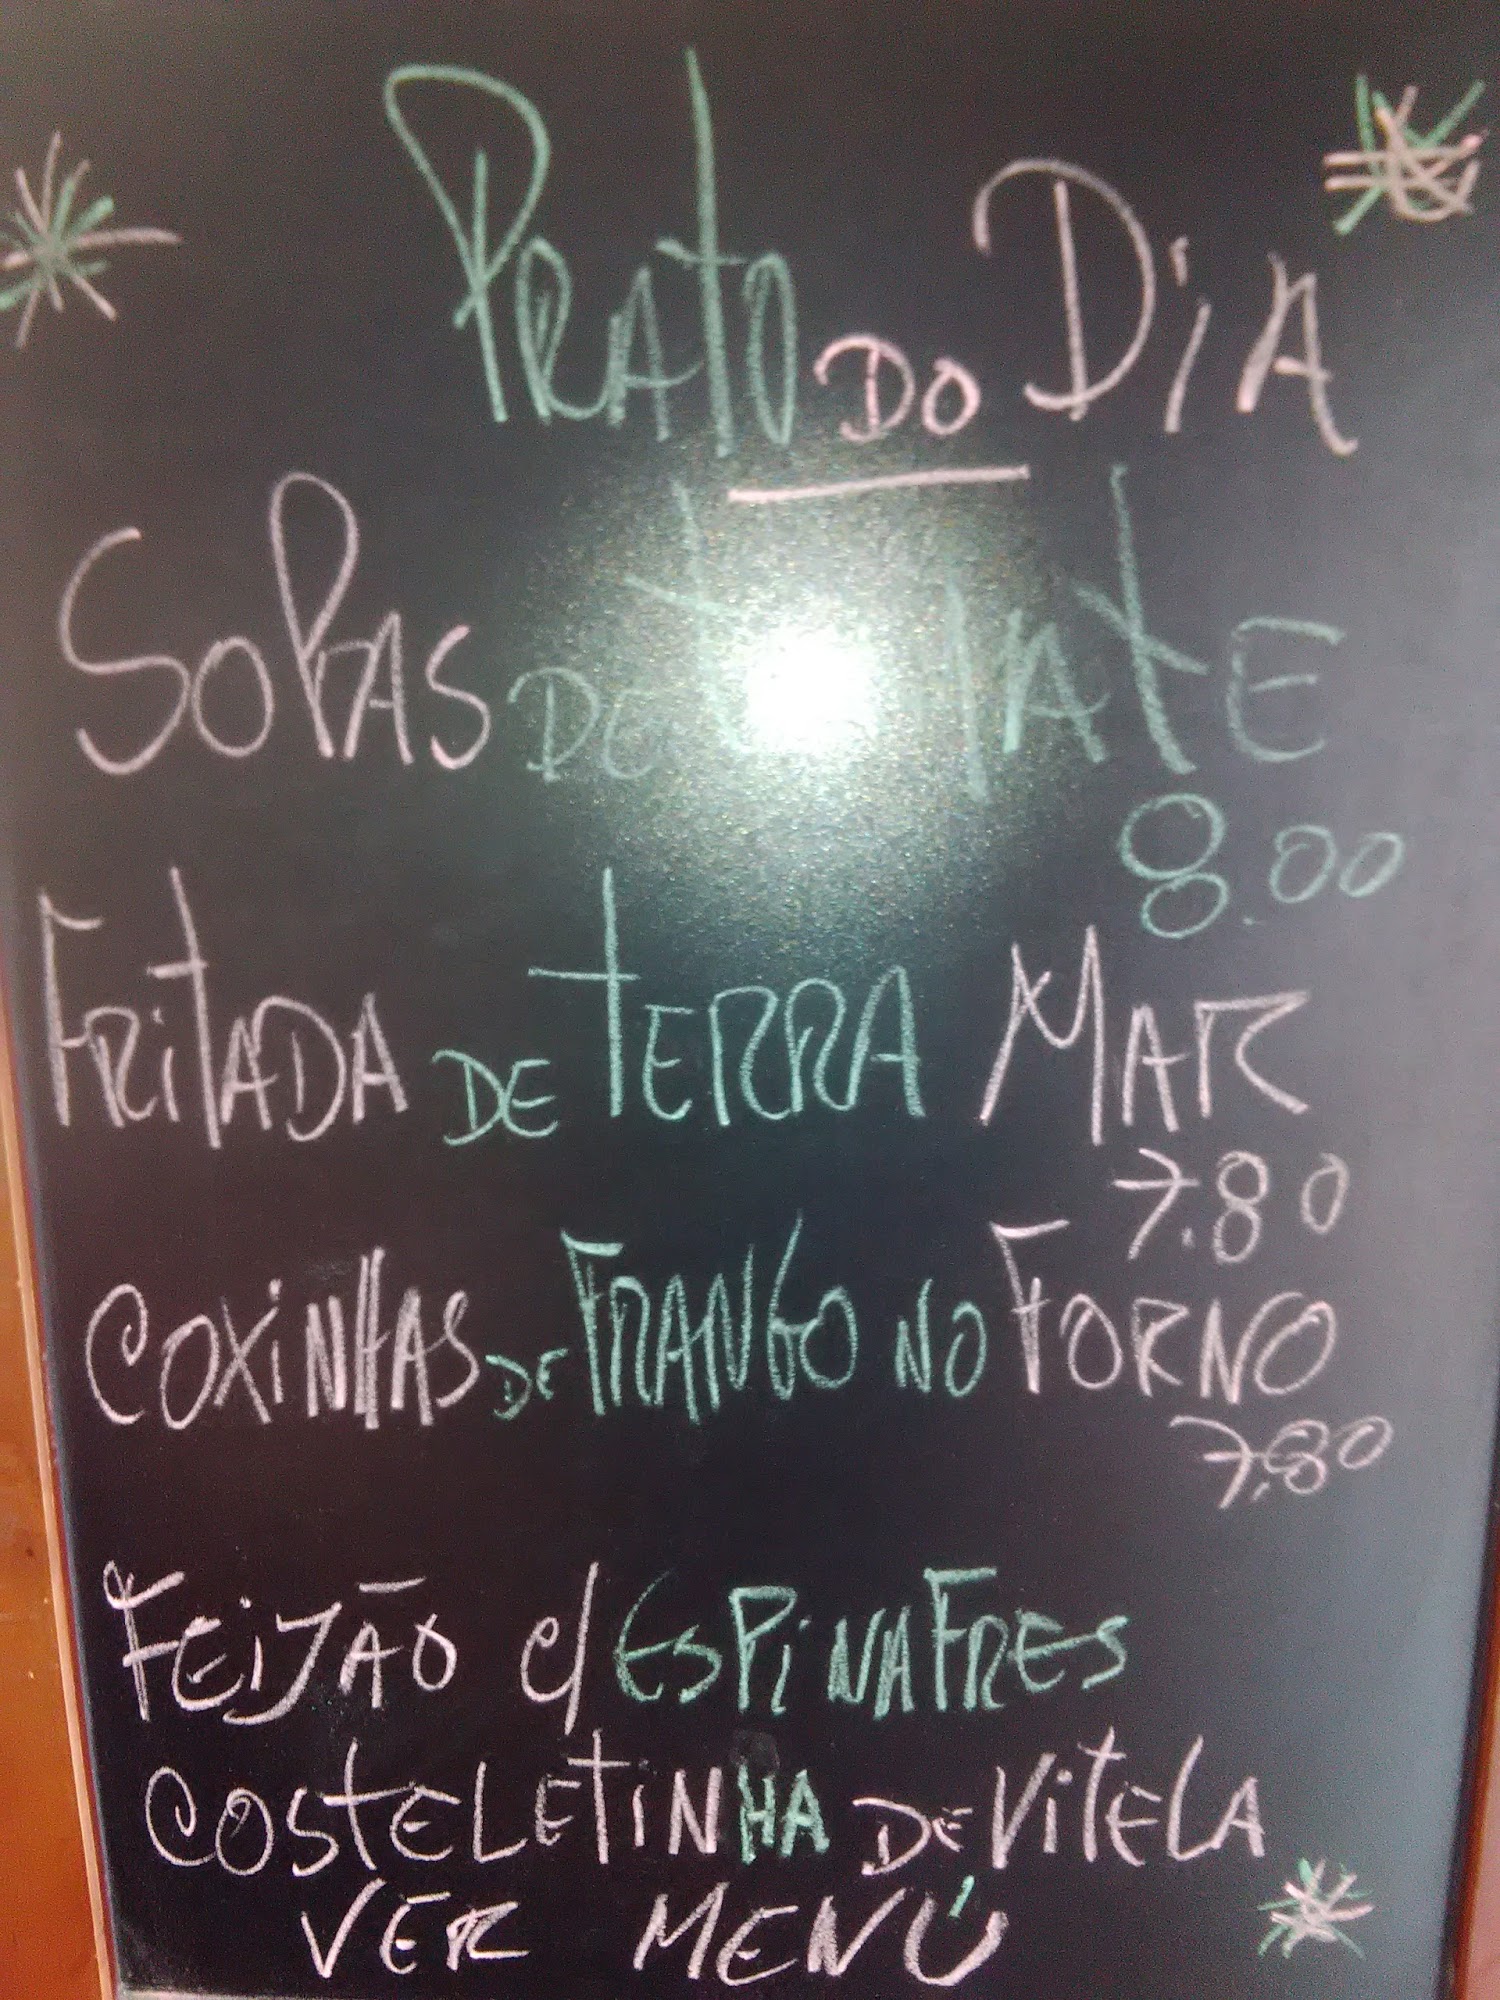 PRATO DO DIA
SOPAS DO TOMATE
8.00
FRITADA DE TERRA MAR
7.80
COXINHAS DE FRANGO NO FORNO
7.80
FEIJÃO C/ ESPINAFRES
COSTELETINHA DE VITELA
VER MENÚ